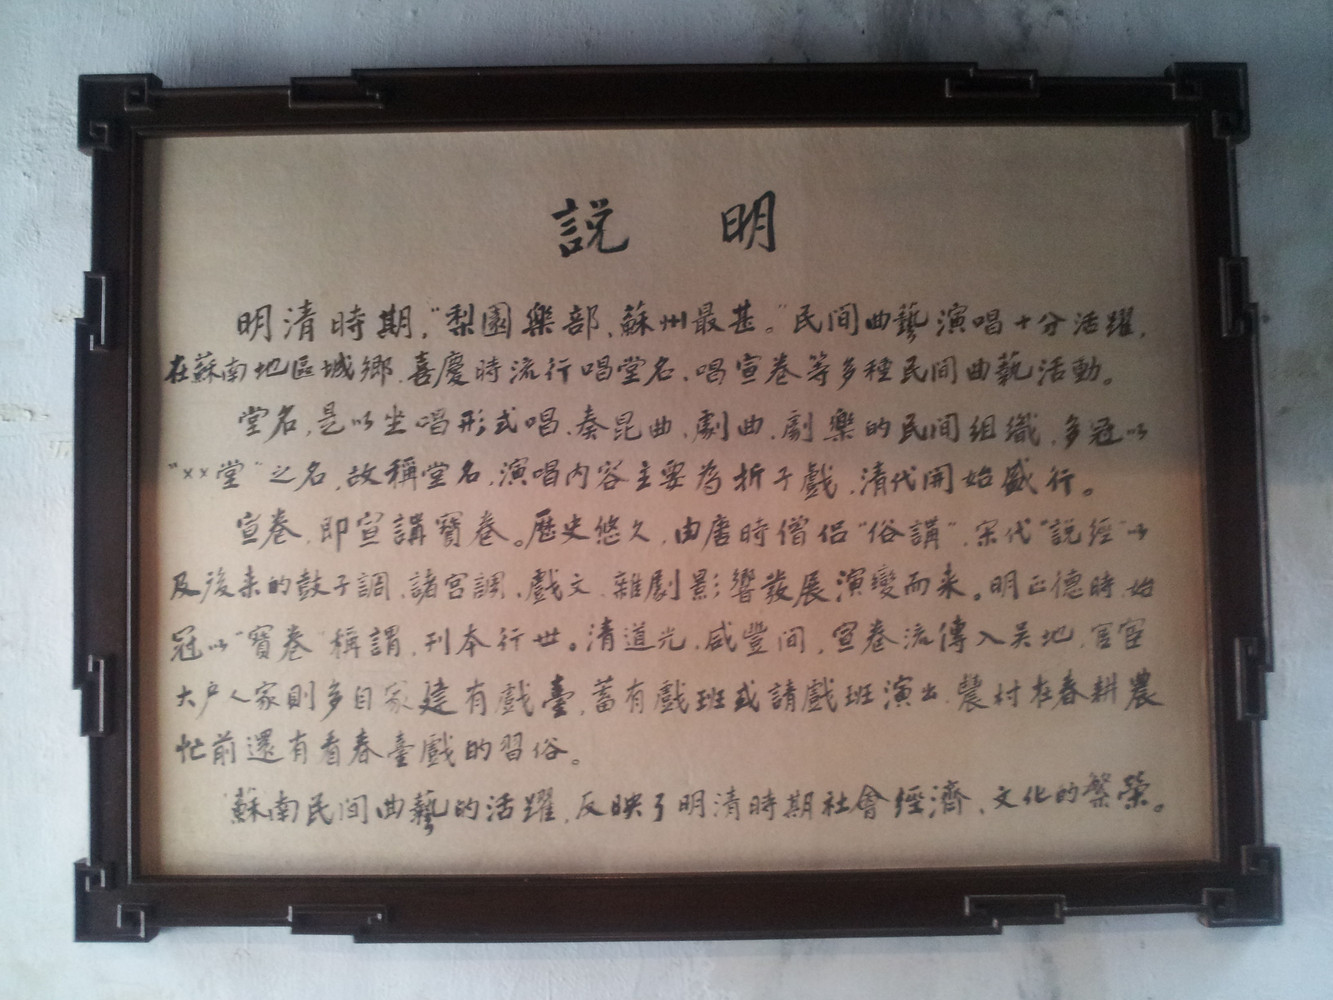 説 明
明清時期，“梨園樂部、蘇州最甚。”民间曲藝演唱十分活躍，
在蘇南地區城鄉，喜慶時流行唱堂名、唱宣卷等多種民间曲藝活動。
堂名，是以坐唱形式唱、奏昆曲、劇曲、劇樂的民间组織，多冠以
“××堂”之名，故稱堂名，演唱内容主要為折子戲，清代開始盛行。
宣卷，即宣講寶卷。歷史悠久，由唐時僧侣“俗講”，宋代“説經”以
及後来的鼓子調、諸宫調、戲文、雜劇影響發展演變而来。明正德時，始
冠以“寶卷”稱謂，刊本行世。清道光、咸豐间，宣卷流傳入吴地，官宦
大户人家則多自家建有戲臺，蓄有戲班或請戲班演出，農村在春耕農
忙前還有看春臺戲的習俗。
蘇南民间曲藝的活躍，反映了明清時期社會經濟、文化的繁榮。